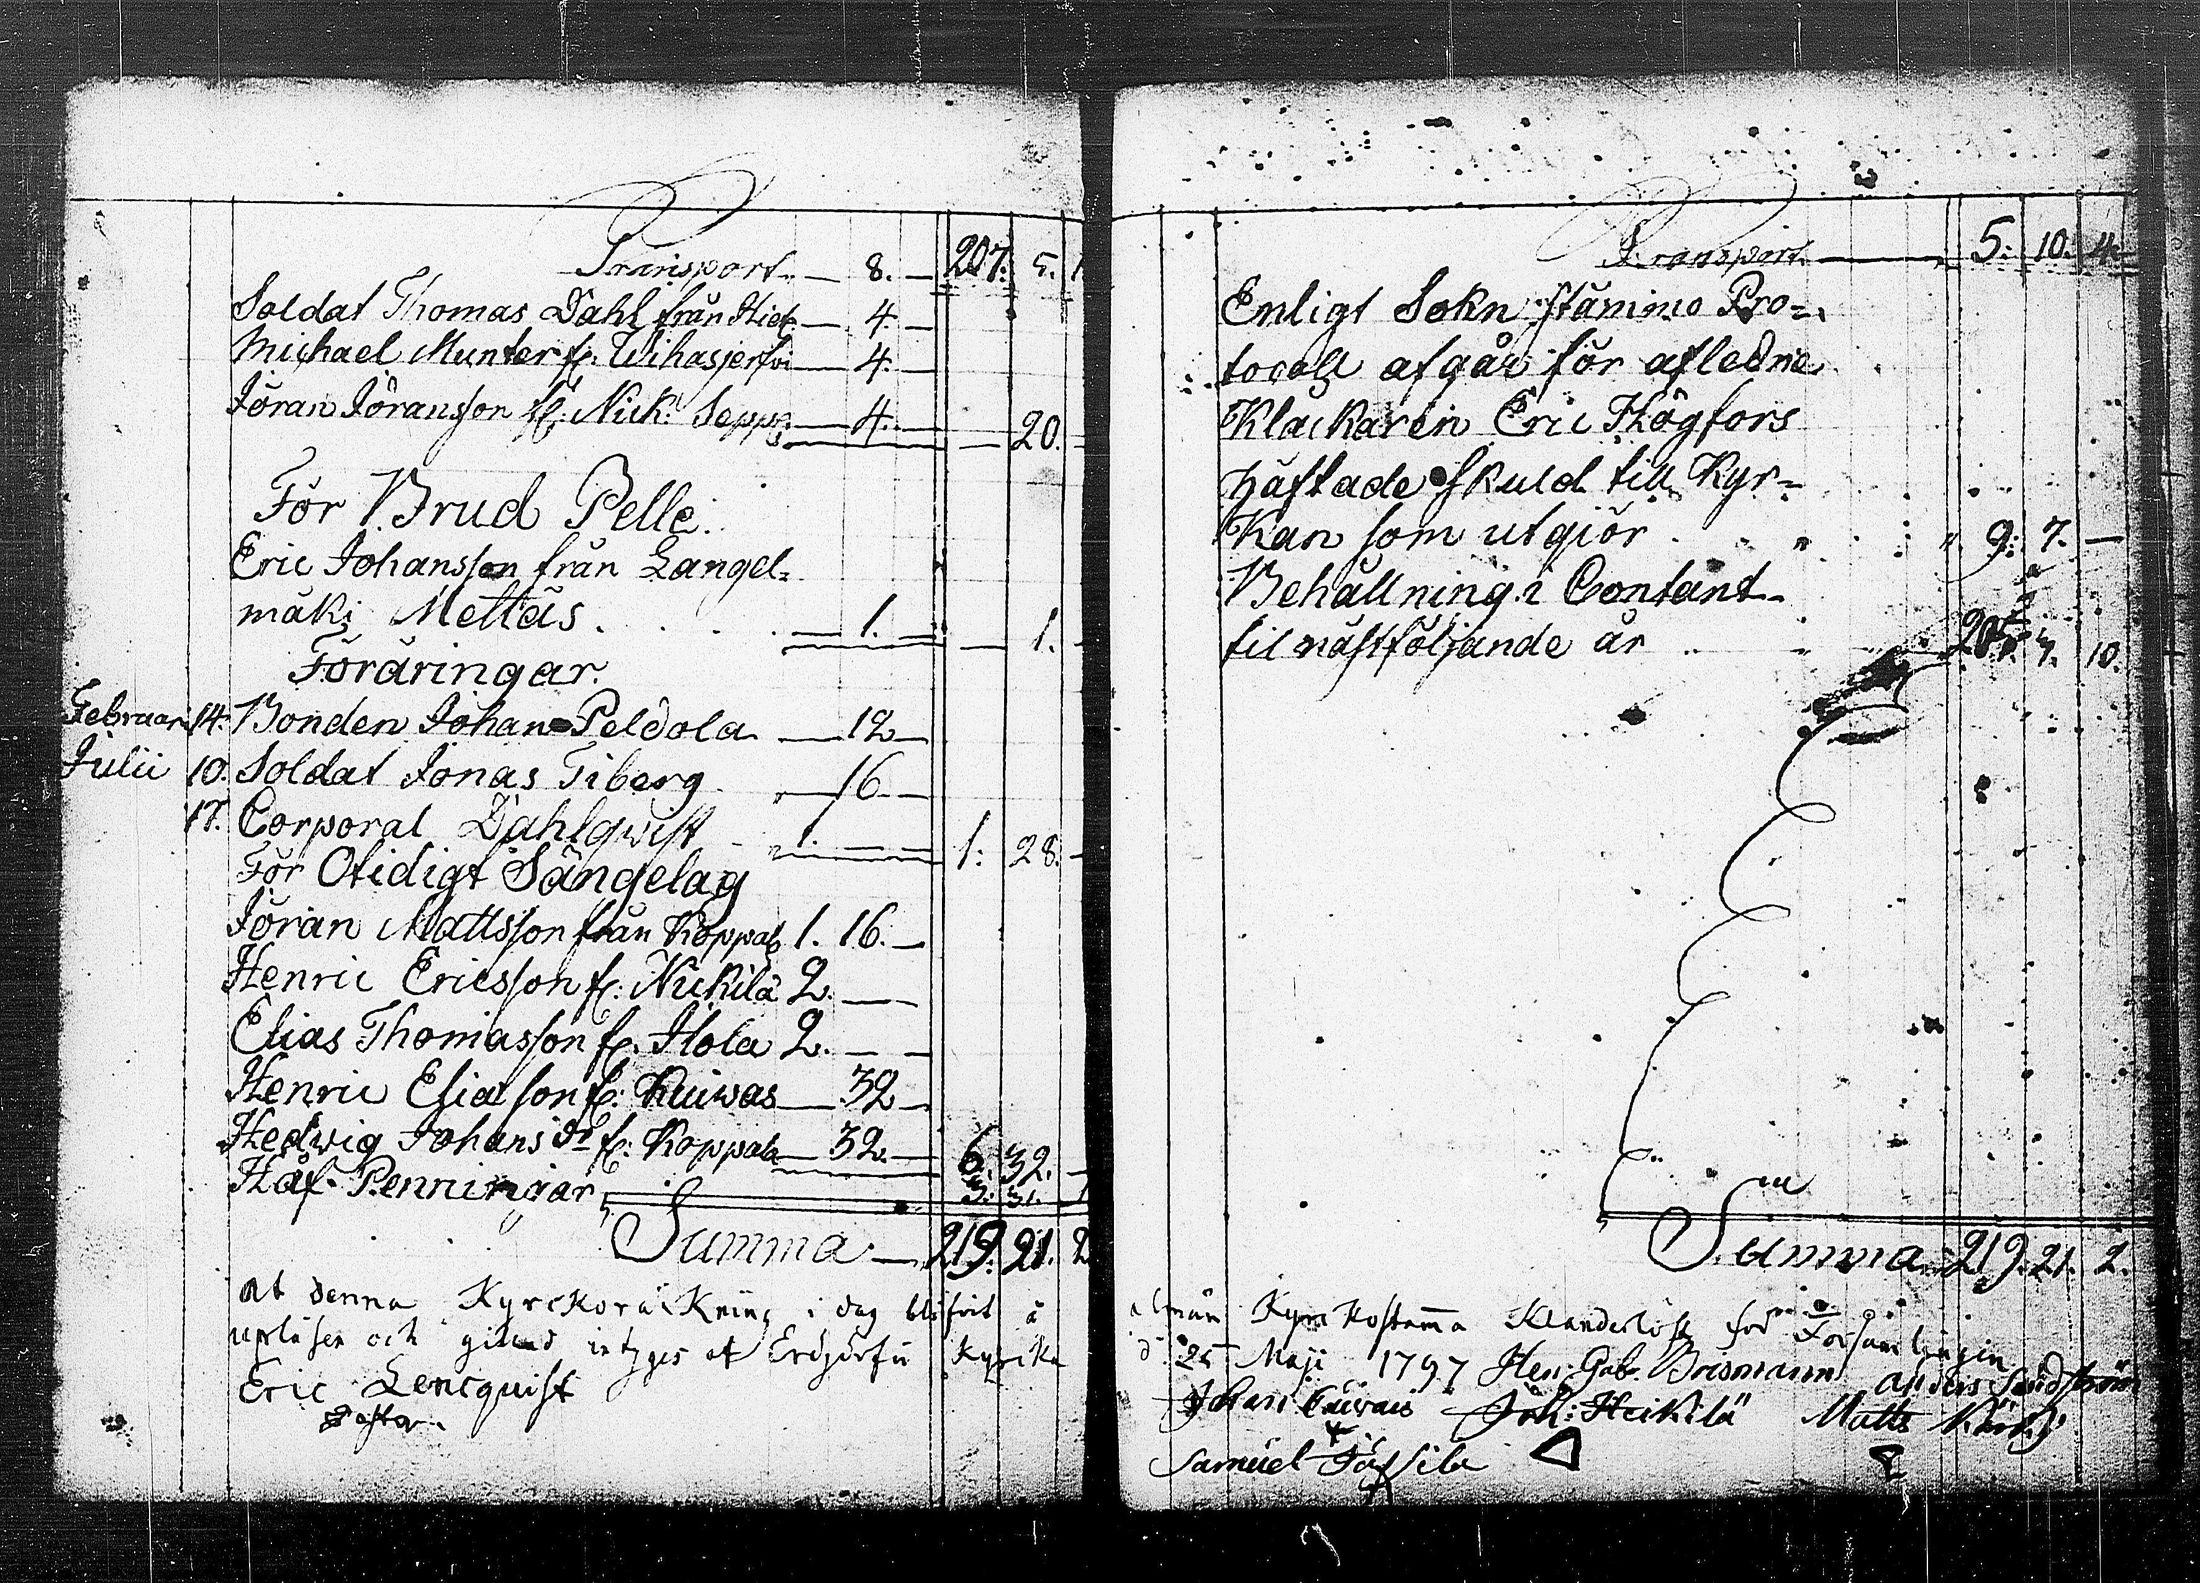 Transport. — 8. — 207. 5. 1
Soldat Thomas Dahl från Hiet — 4. —
Michael Munter fr. Wihasjerfvi — 4. —
Jöran Jöransson fr: Nick: Seppä — 4. — — 20. —
För Brud Pelle.
Eric Johansson från Langel=
mäki Mettäs . . . . — 1. — — 1. -
Föräringar.
Februari 14. Bonden Johan Peldola — 12 —
Julii 10. Soldat Jonas Tiberg — 16 —
17. Corporal Dahlqwist 1. — — 1: 28. -
För Otidigt Sängelag
Jöran Mattsson från Koppala 1. 16. —
Henric Ericsson fr: Nickilä 2. —
Elias Thomasson fr. Ilola 2. — —
Henric Eliasson fr: Ruiwas — 32 —
Hedwig Johans dr fr: Koppala — 32. — 6. 32. —
Håf-Penningar 3. 31. 1
Summa — 219. 21. 2
At denna Kyrckoräkning i dag blifvit å
upläsen och gillad intyges af Erdjärfvi Kyrcka
Eric Lencquist
Pastor.
Transport. — 5. 10. 4.
Enligt Sokn stämmo Pro=
tocoll afgår för afledne
Klackaren Eric Högfors
häftade skuld till Kyr=
kan som utgiör . . . 9: 7. —
Behållning i Contant
til nästföljande år . . 7. 10.
Summa 219. 21. 2.
almän Kyrckostämma Klanderlöst för Församlingen
d. 25 Maji 1797 Hen: Gab. Brismann Anders Sandström
Johan Joh: Heikilä Matts
Samuel